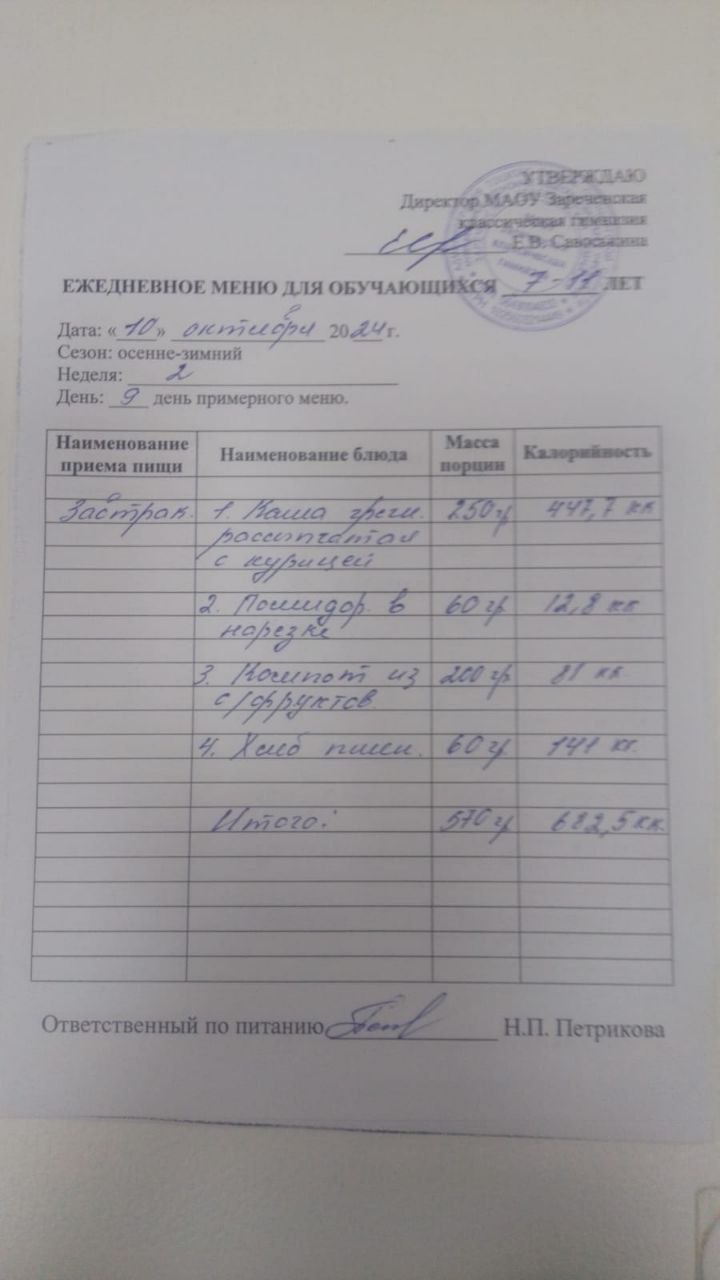 УТВЕРЖДАЮ
Директор МАОУ Зареченская
классическая гимназия
Е.В. Савоськина
ЕЖЕДНЕВНОЕ МЕНЮ ДЛЯ ОБУЧАЮЩИХСЯ 7-11 ЛЕТ
Дата: «10» октября 2024 г.
Сезон: осенне-зимний
Неделя: 2
День: 9 день примерного меню.
Наименование приема пищи Наименование блюда Масса порции Калорийность
Завтрак. 1. Каша гречн. 250 гр 447,7 кк
рассыпчатая
с курицей
2. Помидор в 60 гр 12,8 кк
нарезке
3. Компот из 200 гр 81 кк
с/фруктов
4. Хлеб пшен. 60 гр 141 кк.
Итого: 570 гр 682,5 кк.
Ответственный по питанию Н.П. Петрикова